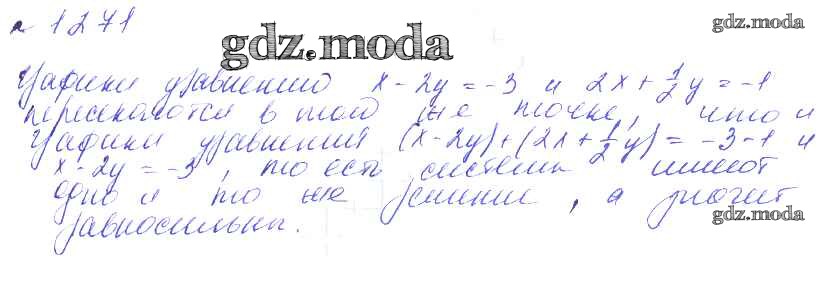 № 1271
gdz.moda
gdz.moda
Графики уравнений x - 2y = -3 и 2x + 1/2 y = -1
пересекаются в той же точке, что и
графики уравнения (x - 2y) + (2x + 1/2 y) = -3 - 1 и
x - 2y = -3, то есть системы имеют
одно и то же решение, а значит
равносильны.
gdz.moda